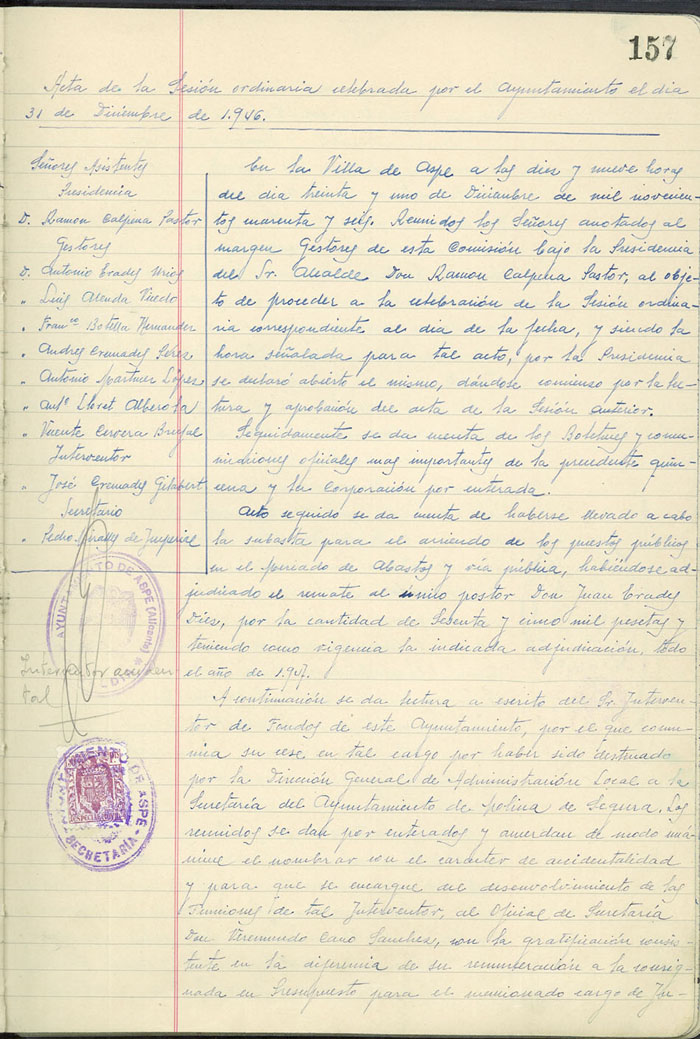 157
Acta de la Sesión ordinaria celebrada por el Ayuntamiento el dia
31 de Diciembre de 1.946.
Señores Asistentes
Presidencia
D. Ramon Calpena Pastor
Gestores
D. Antonio Erades Urios
" Luis Alenda
" Franco Botella Hernandez
" Andres Cremades Perez
" Antonio Martinez López
" Antº Lloret Alberola
" Vicente Cervera Brufal
Interventor
" José Cremades Gilabert
Secretario
" Pedro de Imperial
Interventor acciden
tal
AYUNTAMIENTO DE ASPE (Alicante)
AYUNTAMIENTO DE ASPE
SECRETARIA
ESPECIAL MOVIL
En la Villa de Aspe a las diez y nueve horas
del dia treinta y uno de Diciembre de mil novecien-
tos cuarenta y seis. Reunidos los Señores anotados al
margen Gestores de esta Comisión bajo la Presidencia
del Sr. Alcalde Don Ramon Calpena Pastor, al obje-
to de proceder a la celebración de la Sesión ordina-
ria correspondiente al dia de la fecha, y siendo la
hora señalada para tal acto, por la Presidencia
se declaró abierto el mismo, dándose comienzo por la lec-
tura y aprobación del acta de la Sesión anterior.
Seguidamente se da cuenta de los Boletines y comu-
nicaciones oficiales mas importantes de la precedente quin-
cena y la Corporación por enterada.
Acto seguido se da cuenta de haberse llevado a cabo
la subasta para el arriendo de los puestos públicos
en el Mercado de Abastos y via pública, habiéndose ad-
judicado el remate al único postor Don Juan Erades
Diez, por la cantidad de Sesenta y cinco mil pesetas y
teniendo como vigencia la indicada adjudicación, todo
el año de 1.947.
A continuación se da lectura a escrito del Sr. Interven-
tor de Fondos de este Ayuntamiento, por el que comu-
nica su cese en tal cargo por haber sido destinado
por la Dirección General de Administración Local a la
Secretaría del Ayuntamiento de Molina de Segura, Los
reunidos se dan por enterados y acuerdan de modo uná-
nime el nombrar con el carácter de accidentalidad
y para que se encargue del desenvolvimiento de las
Funciones de tal Interventor, al Oficial de Secretaría
Don Veremundo Cano Sanchez, con la gratificación consis-
tente en la diferencia de su remuneración a la consig-
nada en Presupuesto para el mencionado cargo de In-